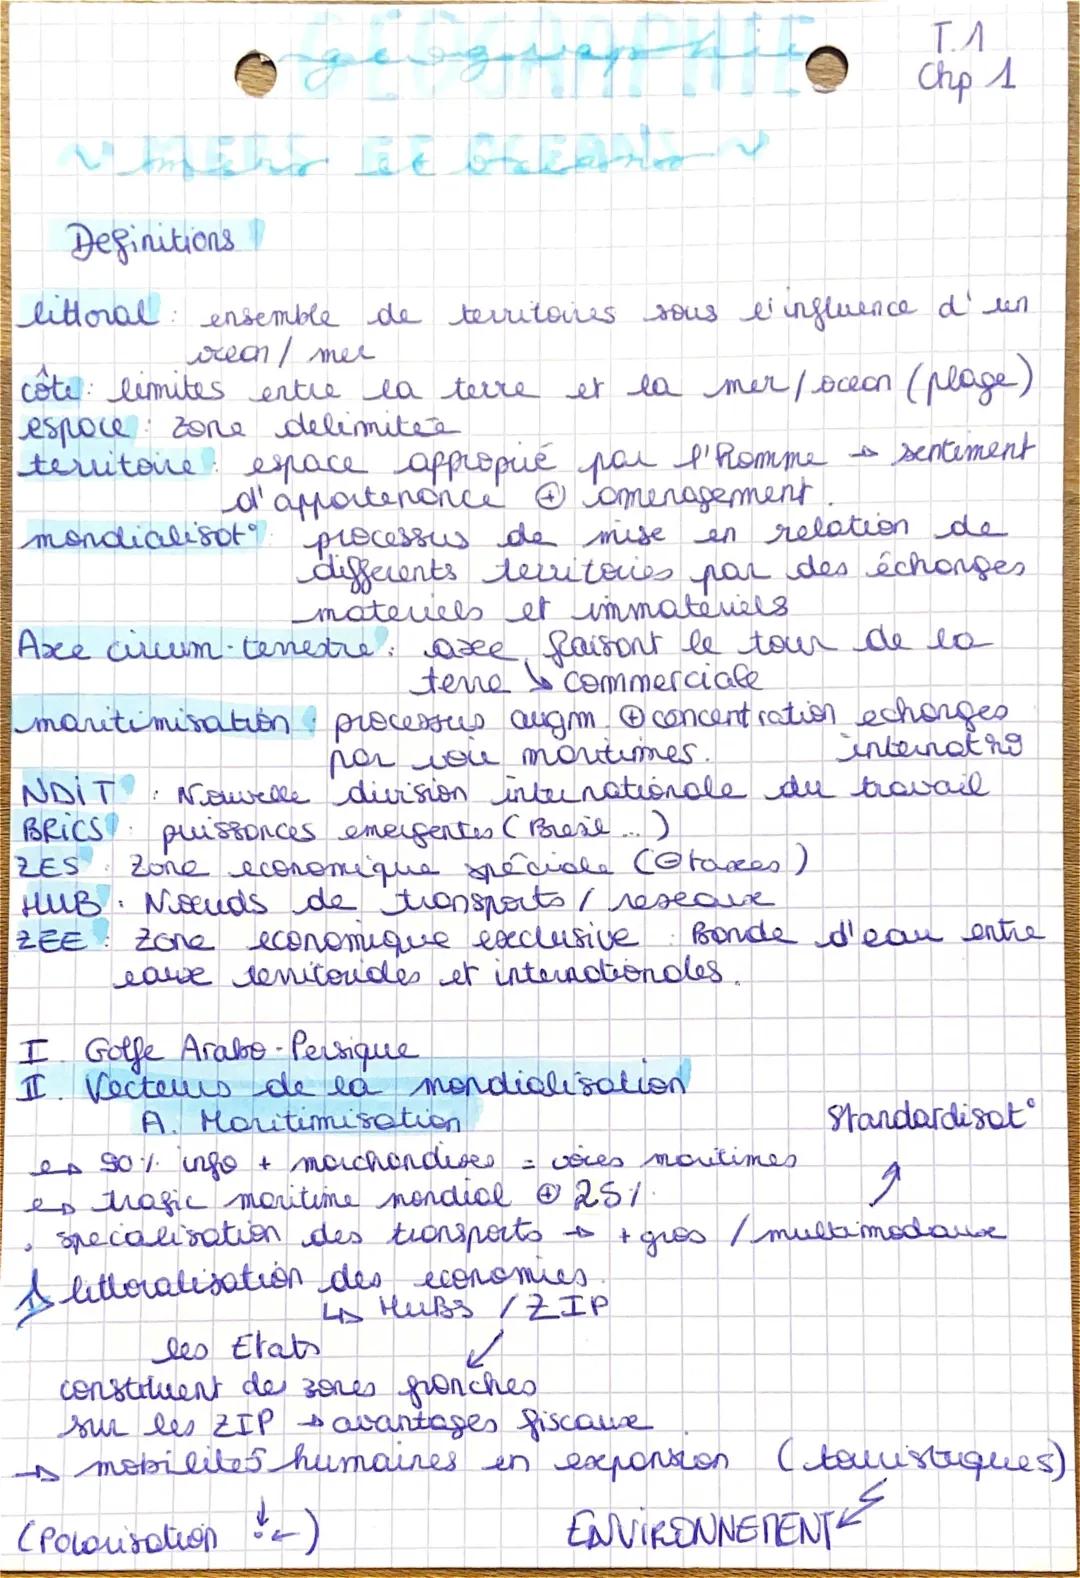 GÉOGRAPHIE
géographie
T.1
Chp 1
~ MERS ET OCEANS ~
Definitions
littoral : ensemble de territoires sous l'influence d'un
ocean / mer
côte : limites entre la terre et la mer/ocean (plage)
espace : zone delimitée
territoire : espace approprié par l'Homme → sentiment
d'appartenance ⊕ amenagement.
mondialisat° : processus de mise en relation de
differents territoires par des échanges
materiels et immateriels
Axe circum-terrestre : axe faisant le tour de la
terre ↳ commerciale
maritimisation : processus augm. ⊕ concentration echanges
par voie maritimes. internat
NDiT : Nouvelle division internationale du travail
BRiCS : puissances emergentes (Bresil ...)
ZES : Zone economique spéciale (⊖ taxes)
HUB : Nœuds de transports / reseaux
ZEE : Zone economique exclusive : Bande d'eau entre
eaux territoriales et internationales.
I. Golfe Arabo-Persique
II. Vecteurs de la mondialisation
A. Maritimisation
Standardisat°
↳ 90% info + marchandises = voies maritimes
↳ trafic maritime mondial ⊕ 25%
• specialisation des transports → + gros / multimodaux
littoralisation des economies.
↳ HuBs / ZIP
les Etats
constituent des zones franches
sur les ZIP → avantages fiscaux
→ mobilités humaines en expansion (touristiques)
(Polarisation ↓ ←)
ENVIRONNEMENT